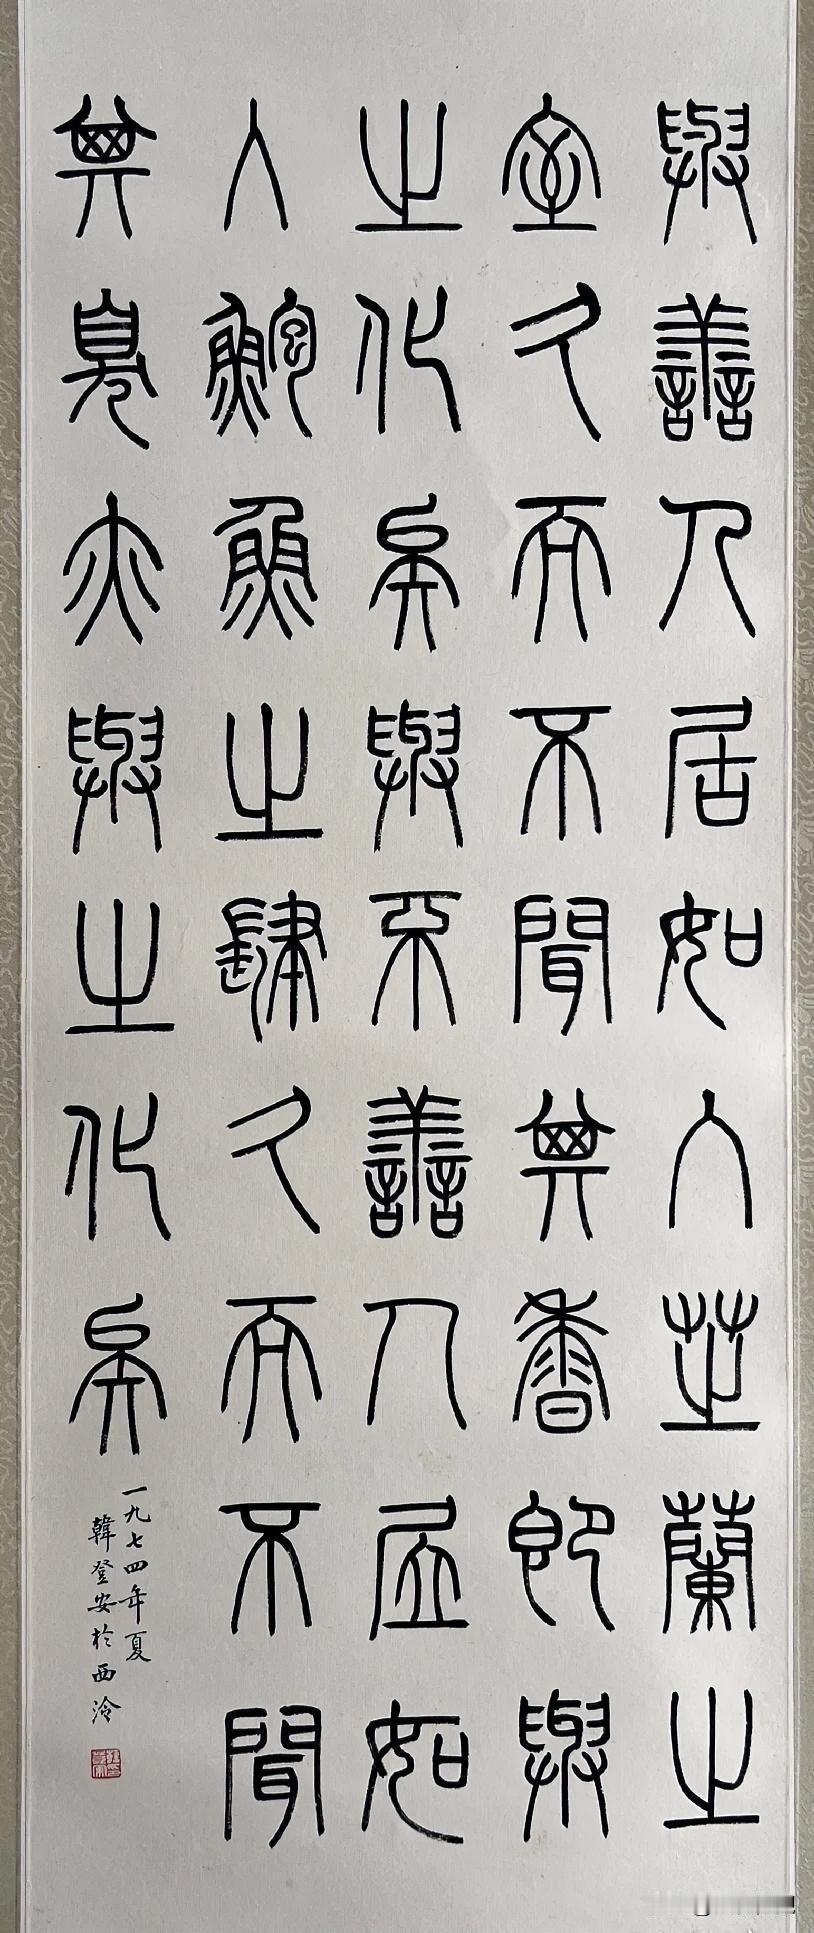 與善人居如入芝蘭之
室久而不聞其香即與
之化矣與不善人居如
入鮑魚之肆久而不聞
其臭亦與之化矣
一九七四年夏
韓登安於西泠